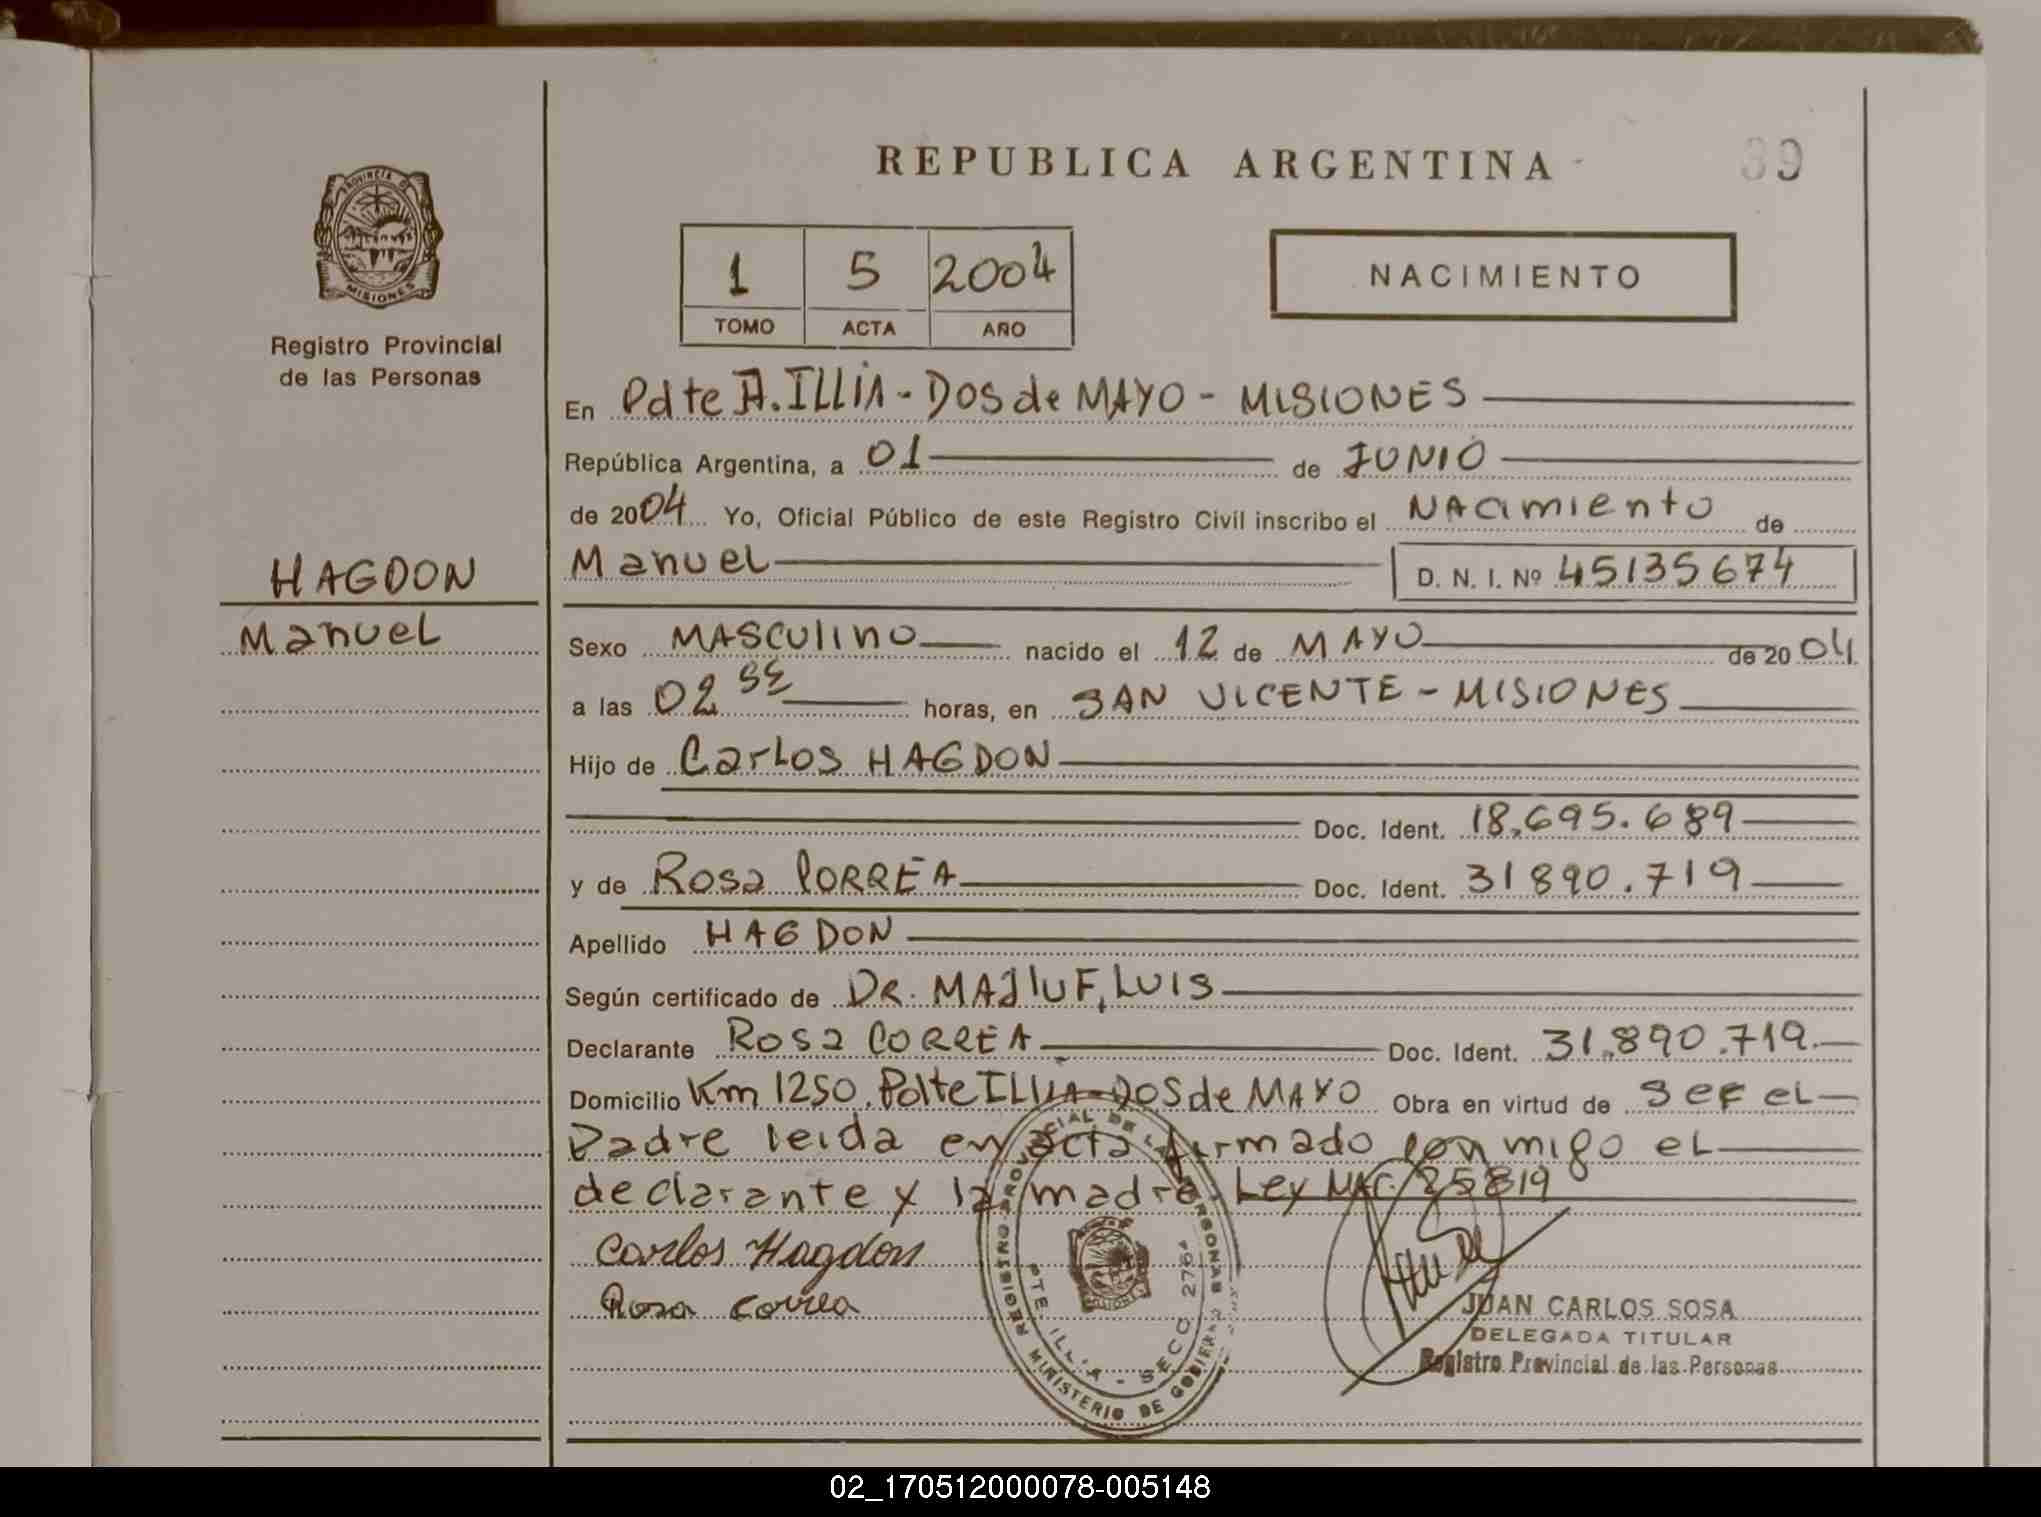 REPUBLICA ARGENTINA
89
PROVINCIA DE
MISIONES
Registro Provincial
de las Personas
1 5 2004
TOMO ACTA AÑO
NACIMIENTO
En Pdte A. ILLIA - DOS de MAYO - MISIONES
República Argentina, a 01 de JUNIO
de 2004 Yo, Oficial Público de este Registro Civil inscribo el NAcimiento de
HAGDON
Manuel
Manuel D. N. I. Nº 45135674
Sexo MASCULINO nacido el 12 de MAYO de 2004
a las 02 horas, en SAN VICENTE - MISIONES
Hijo de Carlos HAGDON
Doc. Ident. 18.695.689
y de Rosa CORREA Doc. Ident. 31890.719
Apellido HAGDON
Según certificado de DR. MAJLUF, LUIS
Declarante Rosa CORREA Doc. Ident. 31.890.719.
Domicilio Km 1250. Pdte ILLIA - DOS de MAYO Obra en virtud de SER EL
Padre leida en acta firmado conmigo el
declarante y la madre Ley NAC. 25819
Carlos Hagdon
Rosa Correa
REGISTRO PROVINCIAL DE LAS PERSONAS
PTE. ILLIA - SECC 2764
MINISTERIO DE GOBIERNO
JUAN CARLOS SOSA
DELEGADA TITULAR
Registro Provincial de las Personas
02_170512000078-005148